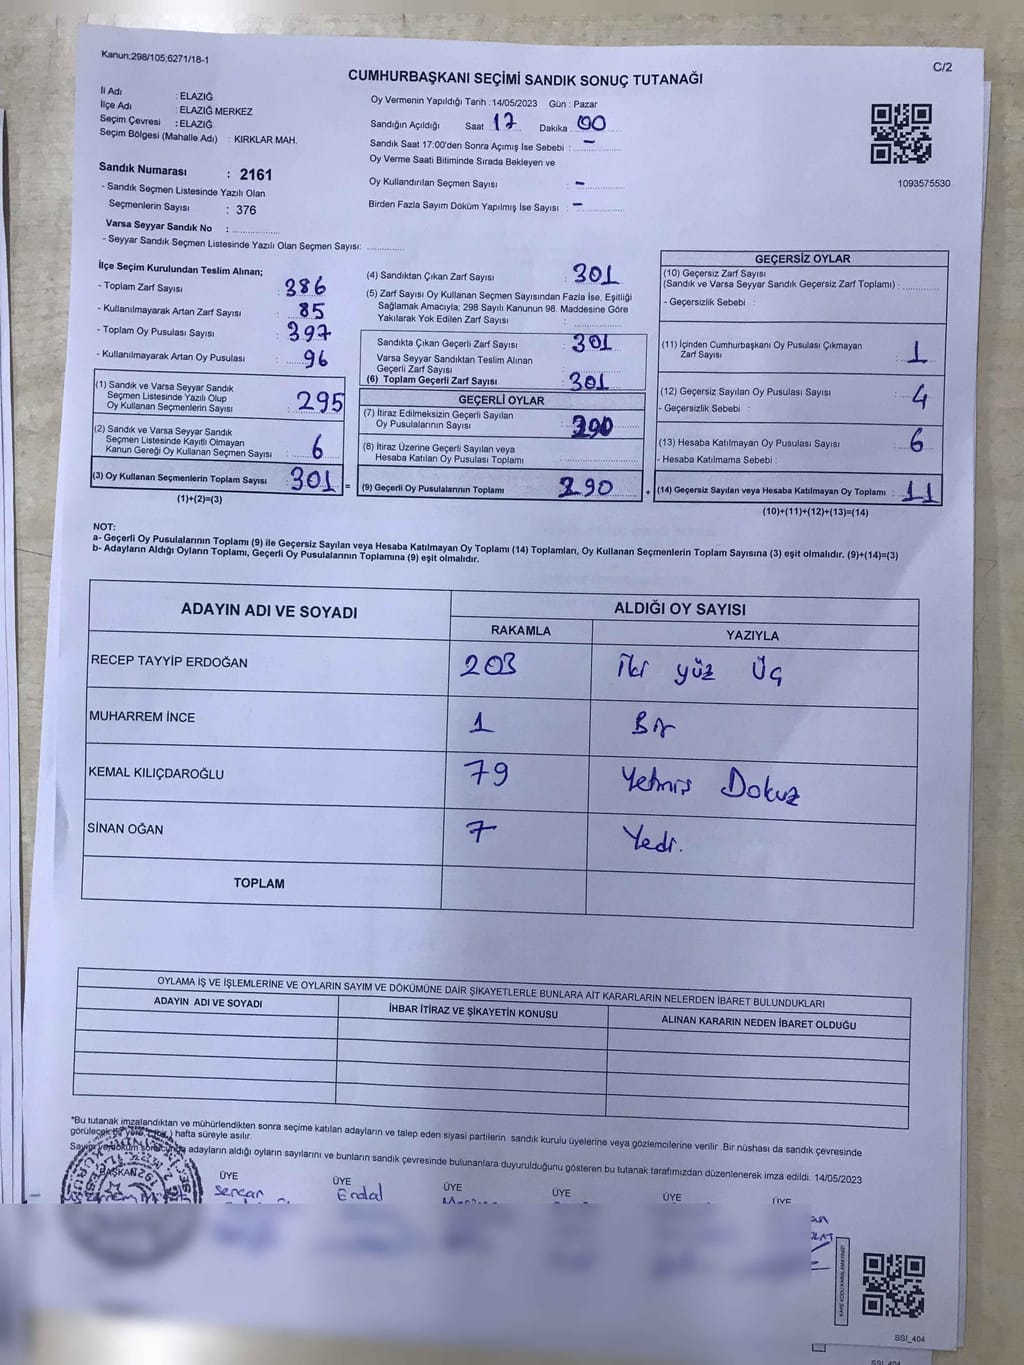 Kanun;298/105;6271/18-1
C/2
CUMHURBAŞKANI SEÇİMİ SANDIK SONUÇ TUTANAĞI
İl Adı : ELAZIĞ
İlçe Adı : ELAZIĞ MERKEZ
Seçim Çevresi : ELAZIĞ
Seçim Bölgesi (Mahalle Adı) : KIRKLAR MAH.
Sandık Numarası : 2161
- Sandık Seçmen Listesinde Yazılı Olan
Seçmenlerin Sayısı : 376
Varsa Seyyar Sandık No : ..............
- Seyyar Sandık Seçmen Listesinde Yazılı Olan Seçmen Sayısı: ............
Oy Vermenin Yapıldığı Tarih : 14/05/2023 Gün : Pazar
Sandığın Açıldığı Saat 17 Dakika 00
Sandık Saat 17:00'den Sonra Açımış İse Sebebi : -
Oy Verme Saati Bitiminde Sırada Bekleyen ve
Oy Kullandırılan Seçmen Sayısı : -
Birden Fazla Sayım Döküm Yapılmış İse Sayısı : -
1093575530
İlçe Seçim Kurulundan Teslim Alınan;
- Toplam Zarf Sayısı : 386
- Kullanılmayarak Artan Zarf Sayısı : 85
- Toplam Oy Pusulası Sayısı : 397
- Kullanılmayarak Artan Oy Pusulası : 96
(1) Sandık ve Varsa Seyyar Sandık
Seçmen Listesinde Yazılı Olup
Oy Kullanan Seçmenlerin Sayısı : 295
(2) Sandık ve Varsa Seyyar Sandık
Seçmen Listesinde Kayıtlı Olmayan
Kanun Gereği Oy Kullanan Seçmen Sayısı : 6
(3) Oy Kullanan Seçmenlerin Toplam Sayısı : 301 =
(1)+(2)=(3)
(4) Sandıktan Çıkan Zarf Sayısı : 301
(5) Zarf Sayısı Oy Kullanan Seçmen Sayısından Fazla İse, Eşitliği
Sağlamak Amacıyla; 298 Sayılı Kanunun 98. Maddesine Göre
Yakılarak Yok Edilen Zarf Sayısı :
Sandıkta Çıkan Geçerli Zarf Sayısı : 301
Varsa Seyyar Sandıktan Teslim Alınan
Geçerli Zarf Sayısı
(6) Toplam Geçerli Zarf Sayısı : 301
GEÇERLİ OYLAR
(7) İtiraz Edilmeksizin Geçerli Sayılan
Oy Pusulalarının Sayısı : 290
(8) İtiraz Üzerine Geçerli Sayılan veya
Hesaba Katılan Oy Pusulası Toplamı :
(9) Geçerli Oy Pusulalarının Toplamı : 290 +
GEÇERSİZ OYLAR
(10) Geçersiz Zarf Sayısı
(Sandık ve Varsa Seyyar Sandık Geçersiz Zarf Toplamı) :
- Geçersizlik Sebebi :
(11) İçinden Cumhurbaşkanı Oy Pusulası Çıkmayan
Zarf Sayısı : 1
(12) Geçersiz Sayılan Oy Pusulası Sayısı : 4
- Geçersizlik Sebebi :
(13) Hesaba Katılmayan Oy Pusulası Sayısı : 6
- Hesaba Katılmama Sebebi :
(14) Geçersiz Sayılan veya Hesaba Katılmayan Oy Toplamı : 11
(10)+(11)+(12)+(13)=(14)
NOT:
a- Geçerli Oy Pusulalarının Toplamı (9) ile Geçersiz Sayılan veya Hesaba Katılmayan Oy Toplamı (14) Toplamları, Oy Kullanan Seçmenlerin Toplam Sayısına (3) eşit olmalıdır. (9)+(14)=(3)
b- Adayların Aldığı Oyların Toplamı, Geçerli Oy Pusulalarının Toplamına (9) eşit olmalıdır.
ADAYIN ADI VE SOYADI ALDIĞI OY SAYISI
RAKAMLA YAZIYLA
RECEP TAYYİP ERDOĞAN 203 İki yüz Üç
MUHARREM İNCE 1 Bir
KEMAL KILIÇDAROĞLU 79 Yetmiş Dokuz
SİNAN OĞAN 7 Yedi.
TOPLAM
OYLAMA İŞ VE İŞLEMLERİNE VE OYLARIN SAYIM VE DÖKÜMÜNE DAİR ŞİKAYETLERLE BUNLARA AİT KARARLARIN NELERDEN İBARET BULUNDUKLARI
ADAYIN ADI VE SOYADI İHBAR İTİRAZ VE ŞİKAYETİN KONUSU ALINAN KARARIN NEDEN İBARET OLDUĞU
*Bu tutanak imzalandıktan ve mühürlendikten sonra seçime katılan adayların ve talep eden siyasi partilerin sandık kurulu üyelerine veya gözlemcilerine verilir .Bir nüshası da sandık çevresinde
görülecek bir yere ) hafta süreyle asılır.
Sayım ve döküm adayların aldığı oyların sayılarını ve bunların sandık çevresinde bulunanlara duyurulduğunu gösteren bu tutanak tarafımızdan düzenlenerek imza edildi. 14/05/2023
BAŞKAN ÜYE ÜYE ÜYE ÜYE ÜYE ÜYE
Sercan Erdal
SSI_404
SSI_404